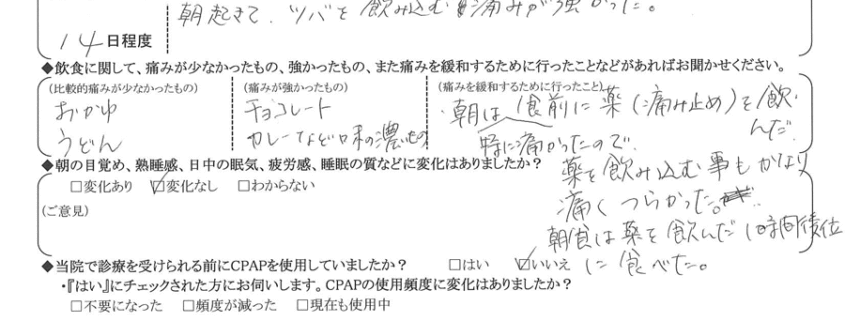 朝起きて、ツバを飲み込む痛みが強かった。
14日程度
◆飲食に関して、痛みが少なかったもの、強かったもの、また痛みを緩和するために行ったことなどがあればお聞かせください。
(比較的痛みが少なかったもの)
おかゆ
うどん
(痛みが強かったもの)
チョコレート
カレーなど味の濃いもの
(痛みを緩和するために行ったこと)
・朝は食前に薬(痛み止め)を飲んだ。
特に痛かったので、
薬を飲み込む事もかなり
痛くつらかった。
朝食は薬を飲んだ1時間後位
に食べた。
◆朝の目覚め、熟睡感、日中の眠気、疲労感、睡眠の質などに変化はありましたか?
□変化あり ☑変化なし □わからない
(ご意見)
◆当院で診療を受けられる前にCPAPを使用していましたか? □はい ☑いいえ
・『はい』にチェックされた方にお伺いします。CPAPの使用頻度に変化はありましたか?
□不要になった □頻度が減った □現在も使用中